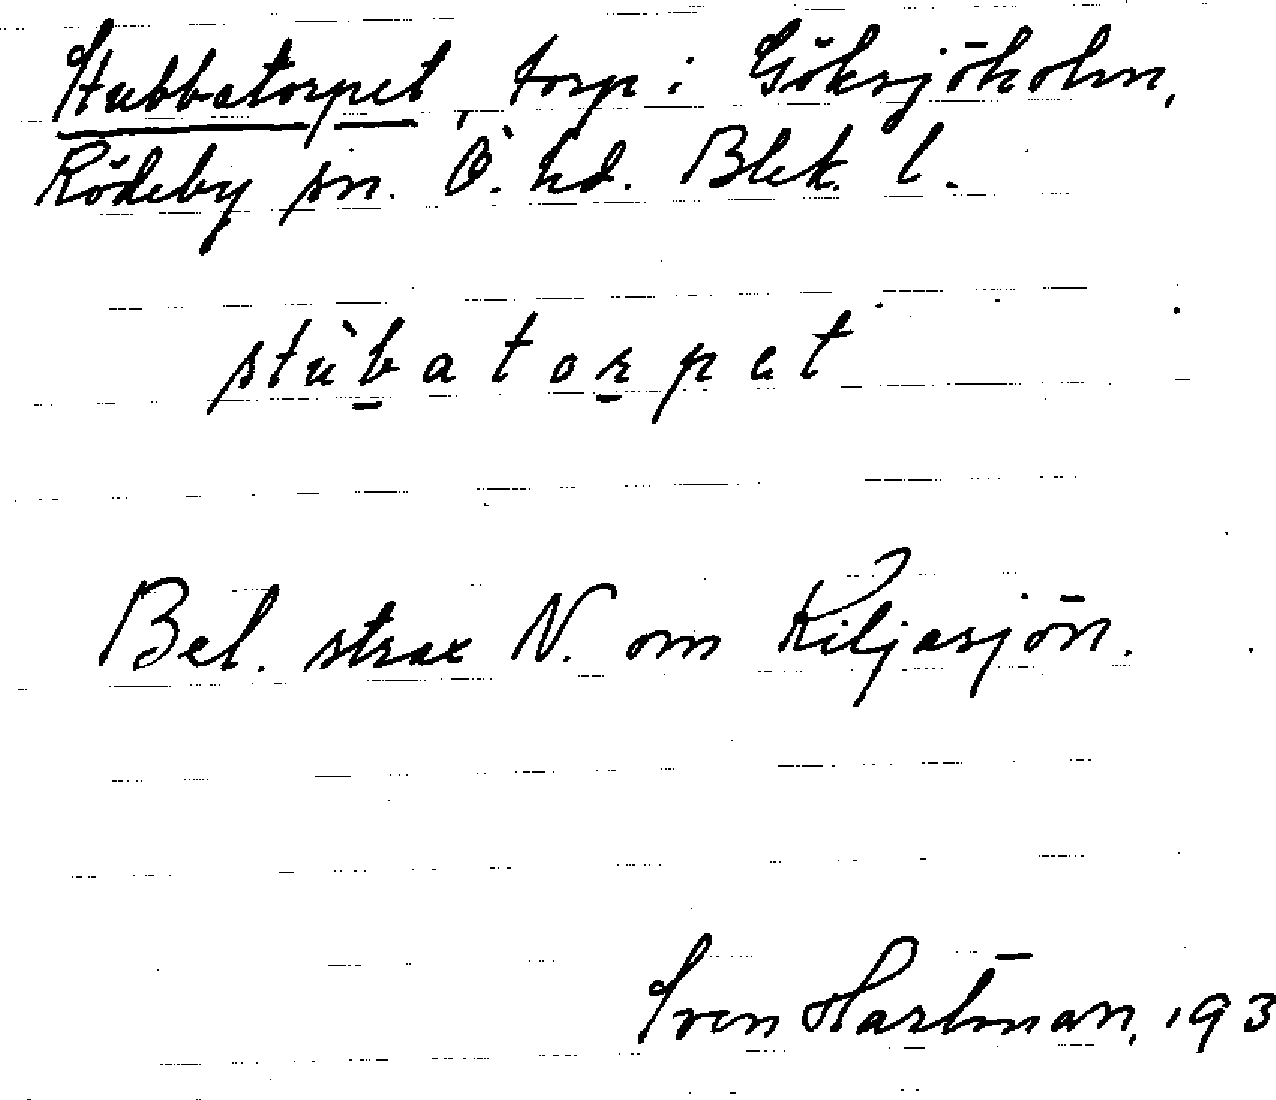 Stubbatorpet, torp i Göksjöholm,
Rödeby sn. Ö. hd. Blek. l.
stùbatorpet
Bel. strax N. om Kiljasjön.
Sven Hartman, 193